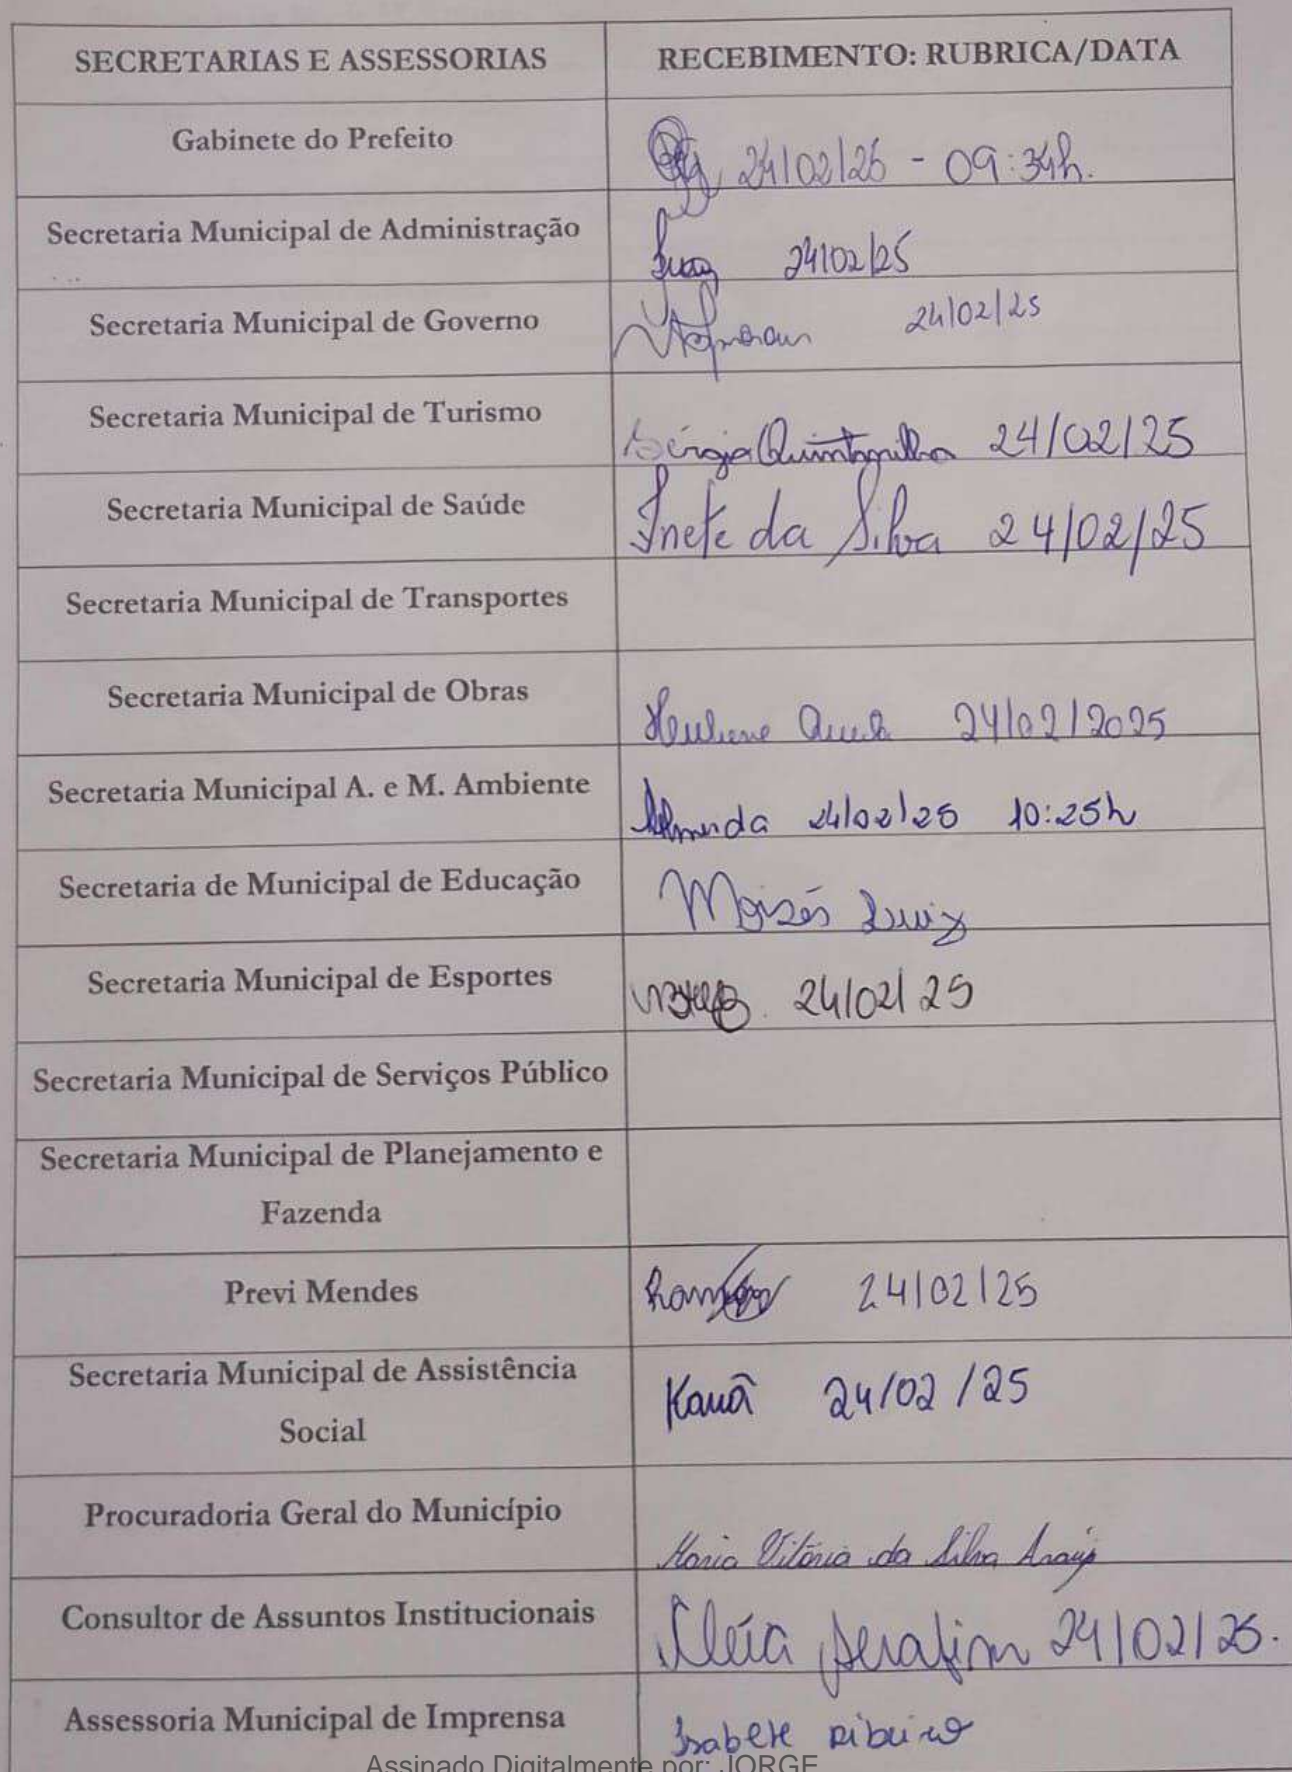 SECRETARIAS E ASSESSORIAS RECEBIMENTO: RUBRICA/DATA
Gabinete do Prefeito 24/02/25 - 09:34h.
Secretaria Municipal de Administração 24/02/25
Secretaria Municipal de Governo 24/02/25
Secretaria Municipal de Turismo Sérgio Quintanilha 24/02/25
Secretaria Municipal de Saúde Inete da Silva 24/02/25
Secretaria Municipal de Transportes
Secretaria Municipal de Obras 24/02/2025
Secretaria Municipal A. e M. Ambiente 24/02/25 10:25h
Secretaria de Municipal de Educação Moisés Luiz
Secretaria Municipal de Esportes 24/02/25
Secretaria Municipal de Serviços Público
Secretaria Municipal de Planejamento e
Fazenda
Previ Mendes 24/02/25
Secretaria Municipal de Assistência
Social Kauã 24/02/25
Procuradoria Geral do Município Maria Vitória da Silva Araújo
Consultor de Assuntos Institucionais Cléia Serafim 24/02/25.
Assessoria Municipal de Imprensa Isabete Ribeiro
Assinado Digitalmente por: JORGE